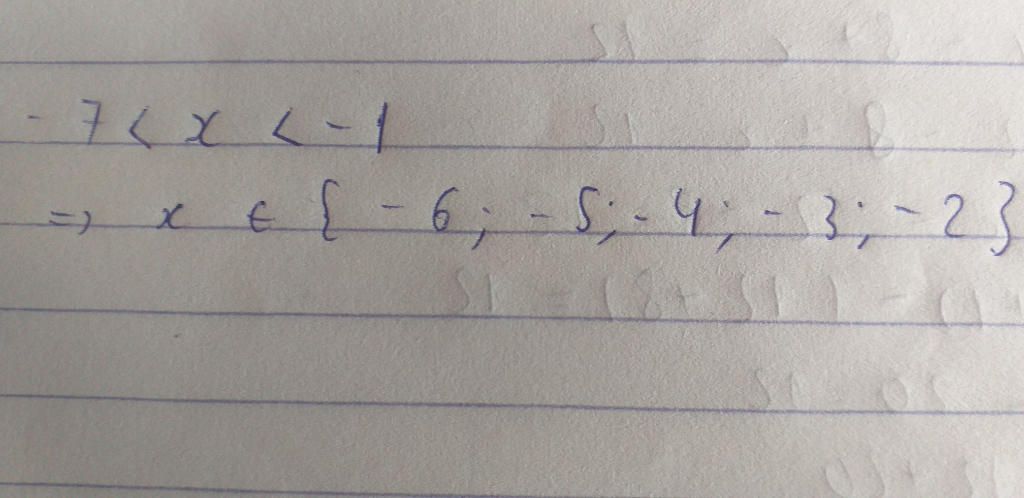 - 7 < x < - 1
=> x ∈ { - 6 ; - 5 ; - 4 ; - 3 ; - 2 }